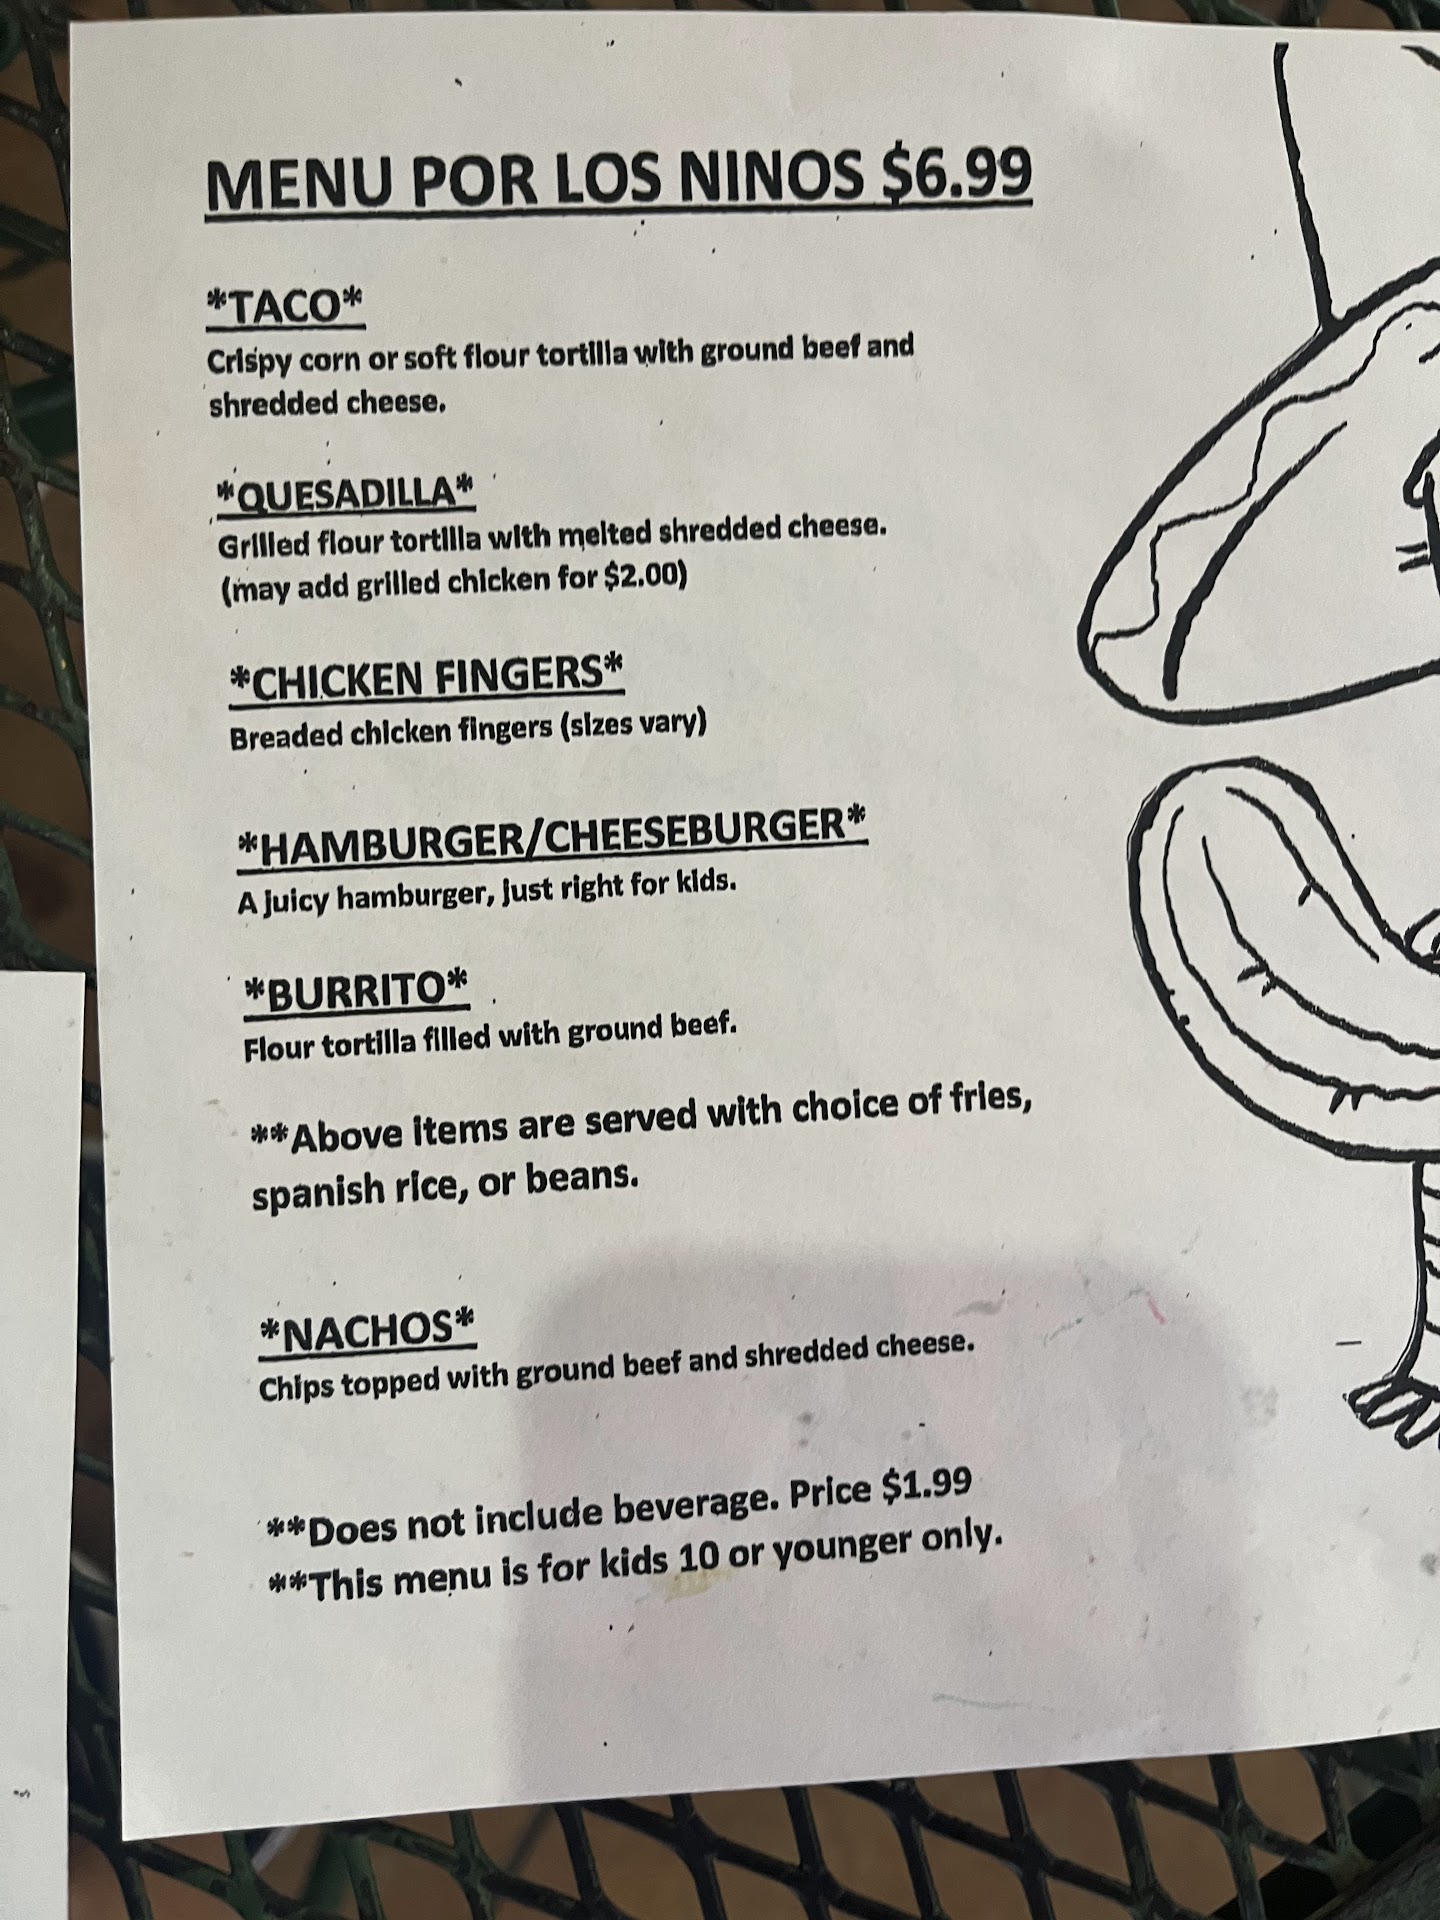 MENU POR LOS NINOS $6.99
*TACO*
Crispy corn or soft flour tortilla with ground beef and
shredded cheese.
*QUESADILLA*
Grilled flour tortilla with melted shredded cheese.
(may add grilled chicken for $2.00)
*CHICKEN FINGERS*
Breaded chicken fingers (sizes vary)
*HAMBURGER/CHEESEBURGER*
A juicy hamburger, just right for kids.
*BURRITO*
Flour tortilla filled with ground beef.
**Above items are served with choice of fries,
spanish rice, or beans.
*NACHOS*
Chips topped with ground beef and shredded cheese.
**Does not include beverage. Price $1.99
**This menu is for kids 10 or younger only.